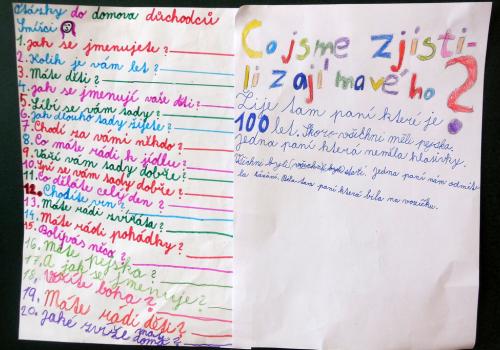 Otázky do domova důchodců
Smíšci
1. jak se jmenujete?
2. Kolik je vám let?
3. Máte děti?
4. jak se jmenují vaše děti?
5. Líbí se vám tady?
6. jak dlouho tady žijete?
7. Chodí za vámi někdo?
8. Co máte rádi k jídlu?
9. Vaří vám tady dobře?
10. Spí se vám tady dobře?
11. Co děláte celý den?
12. Chodíte ven?
13. Máte rádi zvířata?
14. Máte rádi pohádky?
15. Bolí vás něco?
16. Máte pejska?
17. A jak se jmenuje?
18. Věříte boha?
19. Máte rádi děti?
20. jaké zvíře máte doma?
Co jsme zjisti-
li zajímavého?
Žije tam paní které je
100 let. Skoro všichni měli pejska.
Jedna paní která neměla hlasivky.
Všichni byli zlatí. Jedna paní nám odmít-
la. Byla tam paní která bila na vozíčku.